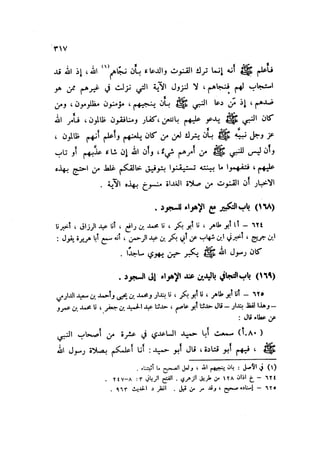 ٣١٧
فأعلم ﷺ أنه إنما ترك القنوت والدعاء بأن نجاهم(١) الله ، إذ الله قد
استجاب لهم فنجاهم ، لا لنزول الآية التي نزلت في غيرهم ممن هو
ضدهم ، إذ من دعا النبي ﷺ بأن ينجيهم ، مؤمنون مظلومون ، ومن
كان النبي ﷺ يدعو عليهم باللعن ، كفار ومنافقون ظالمون ، فأمر الله
عز وجل نبيه ﷺ بأن يترك لعن من كان يلعنهم وأعلم أنهم ظالمون ،
وأن ليس للنبي ﷺ من أمرهم شيء ، وأن الله إن شاء عذبهم أو تاب
عليهم ، فتفهموا ما بينته تستيقنوا بتوفيق خالقكم غلط من احتج بهذه
الأخبار أن القنوت من صلاة الغداة منسوخ بهذه الآية .
(١٦٨) باب التكبير مع الإهواء للسجود .
٦٢٤ – أنا أبو طاهر ، نا أبو بكر ، نا محمد بن رافع ، أنا عبد الرزاق ، أخبرنا
ابن جريج ، أخبرني ابن شهاب عن أبي بكر بن عبد الرحمن ، أنه سمع أبا هريرة يقول :
كان رسول الله ﷺ يكبر حين يهوي ساجداً .
(١٦٩) باب التجافي باليدين عند الإهواء إلى السجود .
٦٢٥ – أنا أبو طاهر ، نا أبو بكر ، نا بندار ومحمد بن يحيى وأحمد بن سعيد الدارمي
– وهذا لفظ بندار – قال حدثنا أبو عاصم ، حدثنا عبد الحميد بن جعفر ، نا محمد بن عمرو
بن عطاء قال :
(٨٠ـأ) سمعت أبا حميد الساعدي في عشرة من أصحاب النبي
ﷺ ، فيهم أبو قتادة ، قال أبو حميد : أنا أعلمكم بصلاة رسول الله
(١) في الأصل : بان ينجيهم الله ، ولعل الصحيح ما أثبتناه .
٦٢٤ – خ أذان ١٢٨ من طريق الزهري . الفتح الرباني ٣ : ٨–٢٤٧ .
٦٢٥ – إسناده صحيح ، وقد مر من قبل . انظر د الحديث ٩٦٣ .